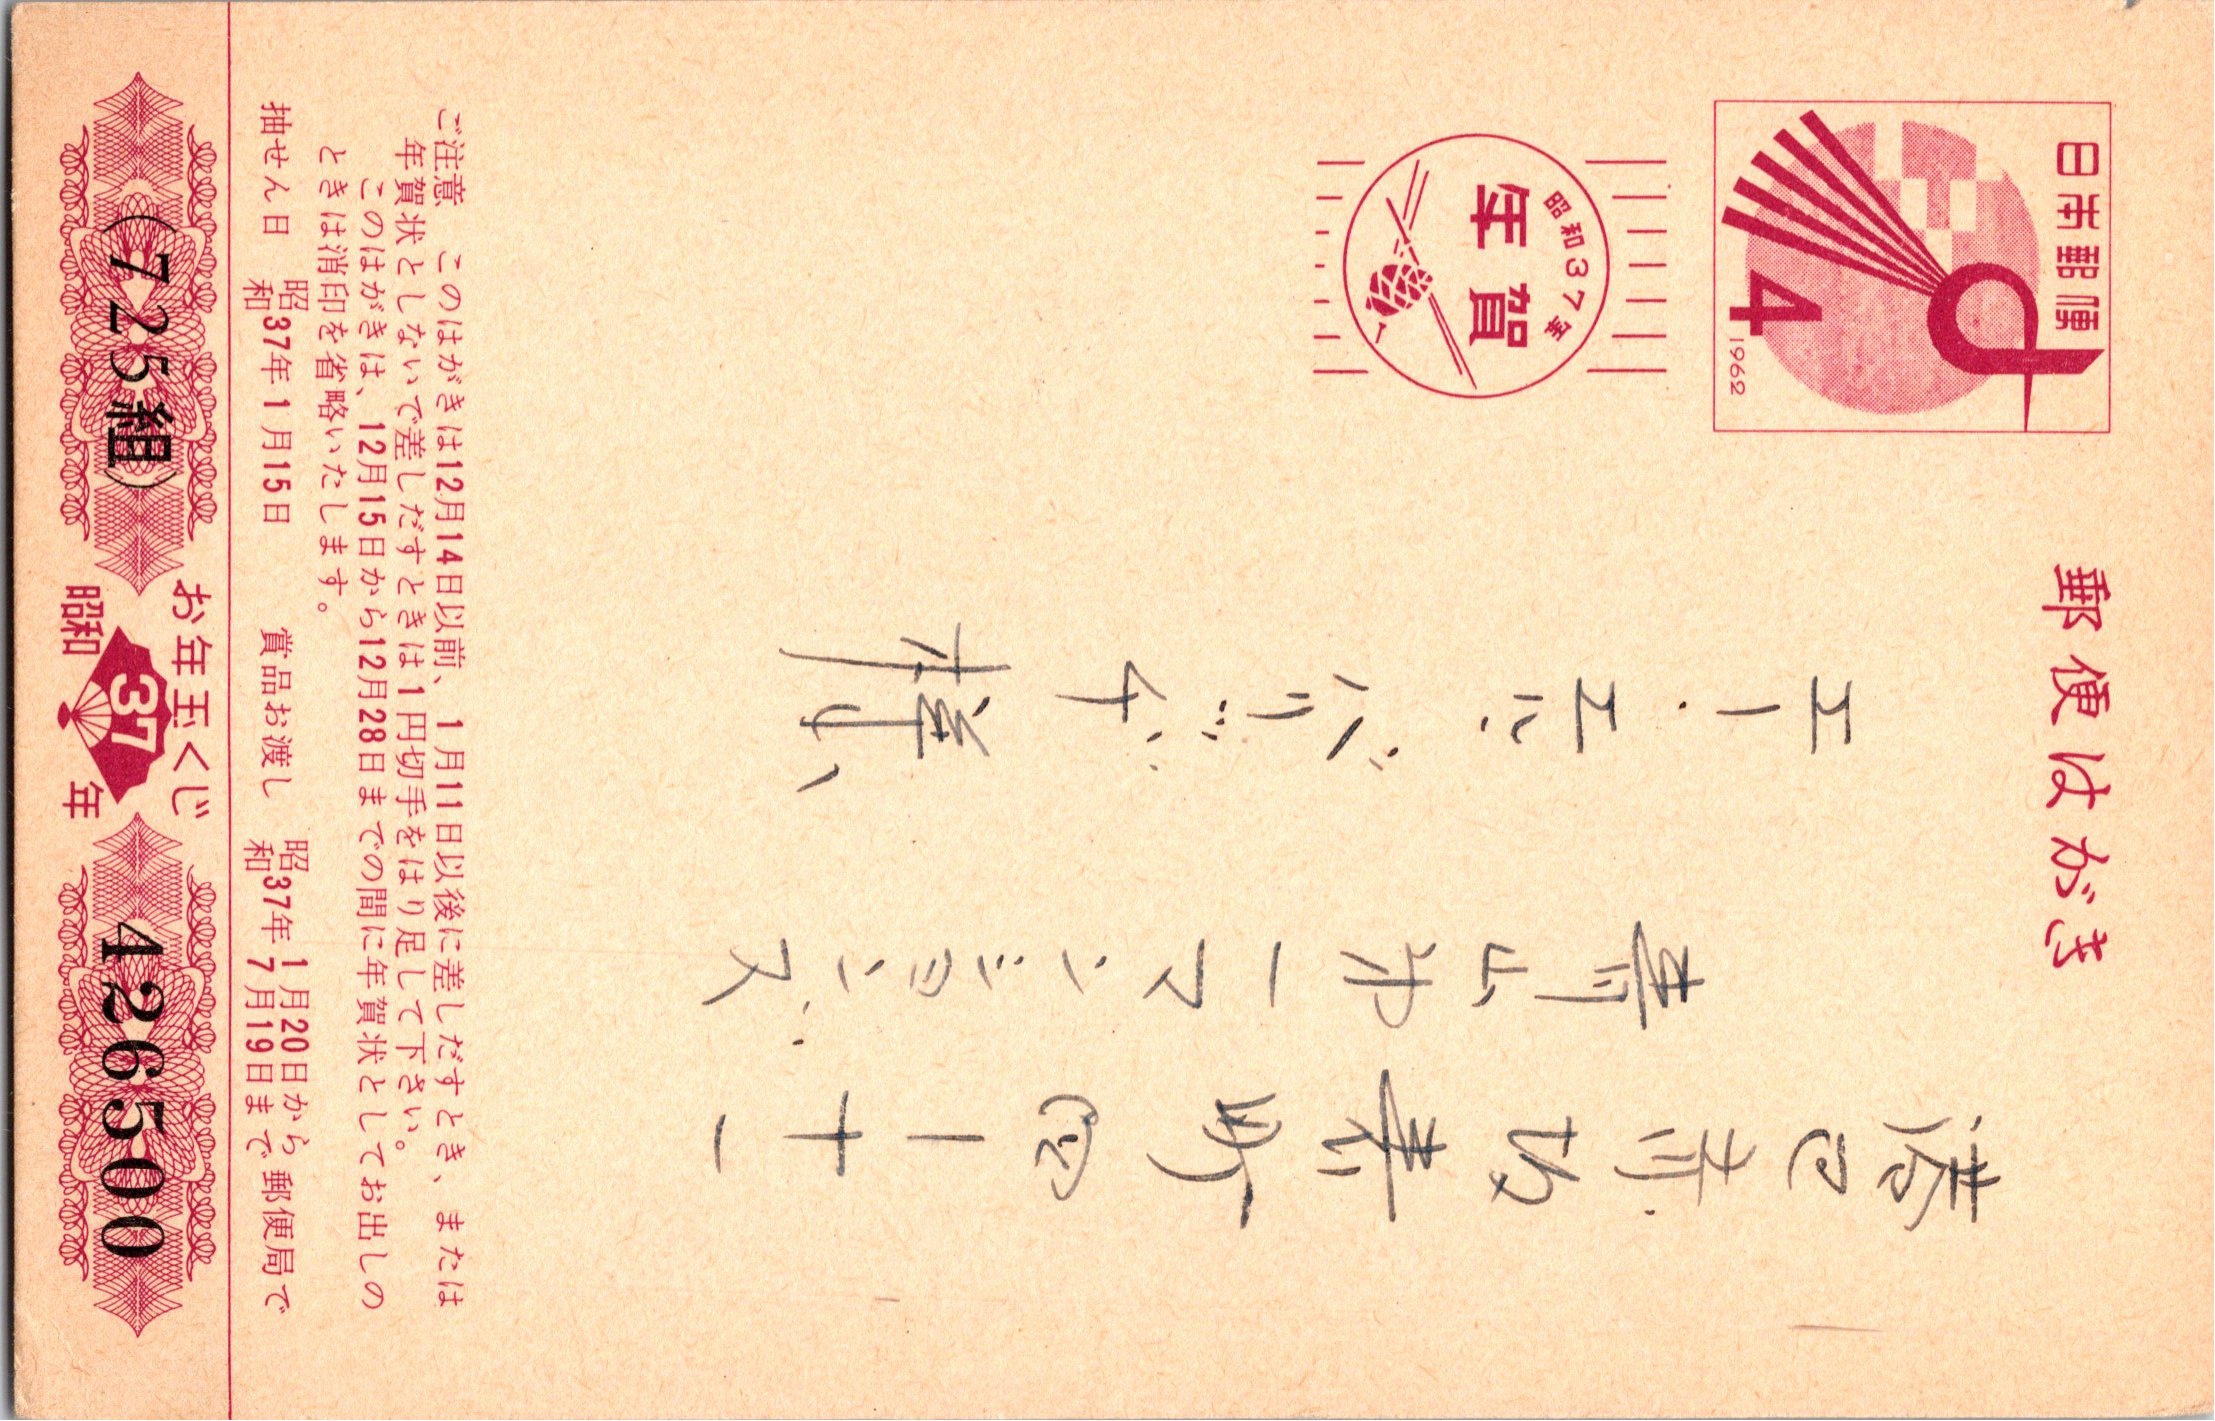 郵便はがき
日本郵便
4
1962
昭和37年
年賀
港区赤坂表町四ー十一
青山第一マンションズ
エー・エル・バリッヂ様
ご注意 このはがきは12月14日以前、1月11日以後に差しだすとき、または
年賀状としないで差しだすときは1円切手をはり足して下さい。
このはがきは、12月15日から12月28日までの間に年賀状としてお出しの
ときは消印を省略いたします。
抽せん日 昭和37年1月15日 賞品お渡し 昭和37年1月20日から7月19日まで郵便局で
お年玉くじ
(725組) 昭和37年 426500